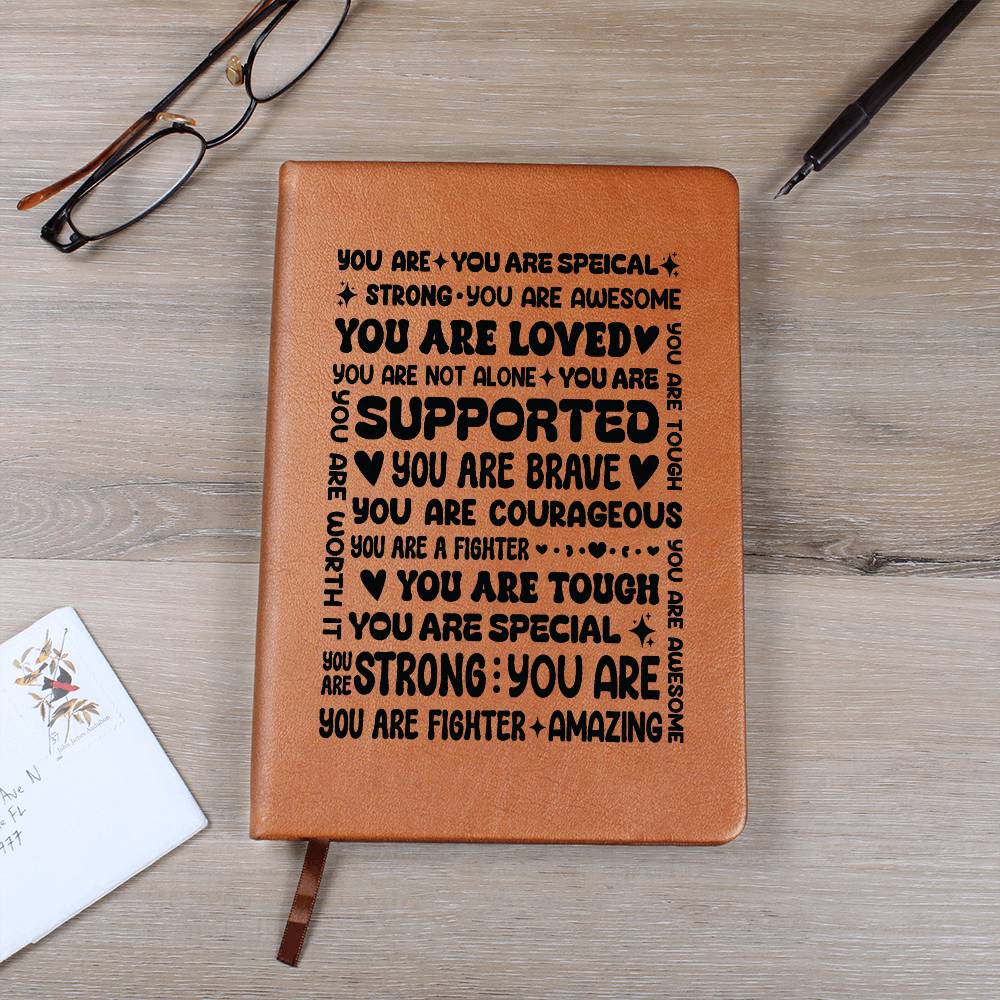 YOU ARE YOU ARE SPEICAL
STRONG • YOU ARE AWESOME
YOU ARE LOVED
YOU ARE NOT ALONE YOU ARE
SUPPORTED
YOU ARE BRAVE
YOU ARE COURAGEOUS
YOU ARE A FIGHTER
YOU ARE TOUGH
YOU ARE SPECIAL
YOU ARE STRONG : YOU ARE
YOU ARE FIGHTER AMAZING
YOU ARE WORTH IT
YOU ARE TOUGH
YOU ARE AWESOME
37
John James Audubon
Ave N
FL
977